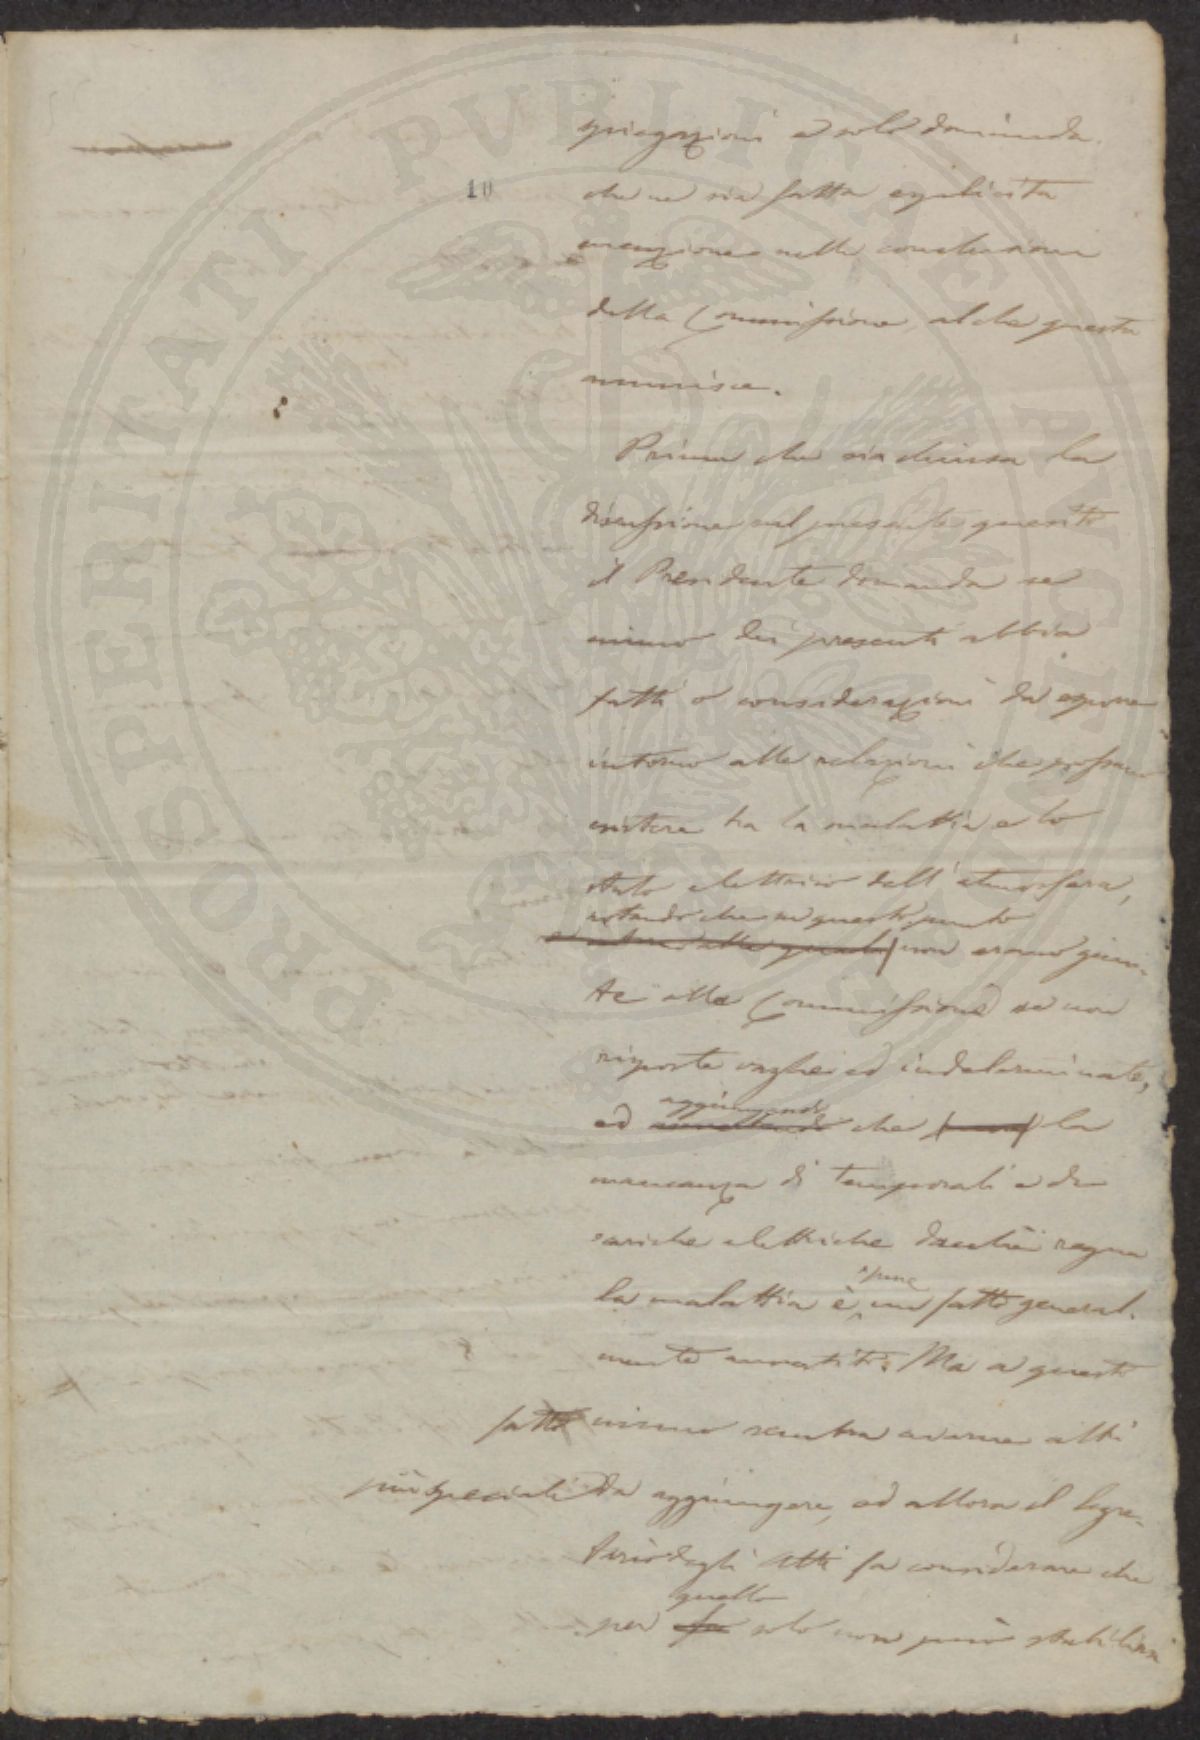 10
spiegazioni e solo domanda
che ne sia fatta esplicita
menzione nelle conclusioni
della Commissione, al che questa
annuisce.
Prima che sia chiusa la
discussione sul presente quesito
il Presidente domanda se
niuno dei presenti abbia
fatti o considerazioni da esporre
intorno alle relazioni che possano
esistere tra la malattia e lo
stato elettrico dell'atmosfera,
notando che su questo punto
non erano giun-
te alla Commissione se non
risposte vaghe ed indeterminate,
aggiungendo
ed che la
mancanza di temporali e di
scariche elettriche dacchè regna
pure
la malattia è un fatto general-
mente avvertito. Ma a questo
fatto niuno sembra averne altri
più speciali da aggiungere, ed allora il Segre-
tario degli Atti fa considerare che
quello
per solo non può stabilirsi
PROSPERITATI PVBLICAE AVGENDAE